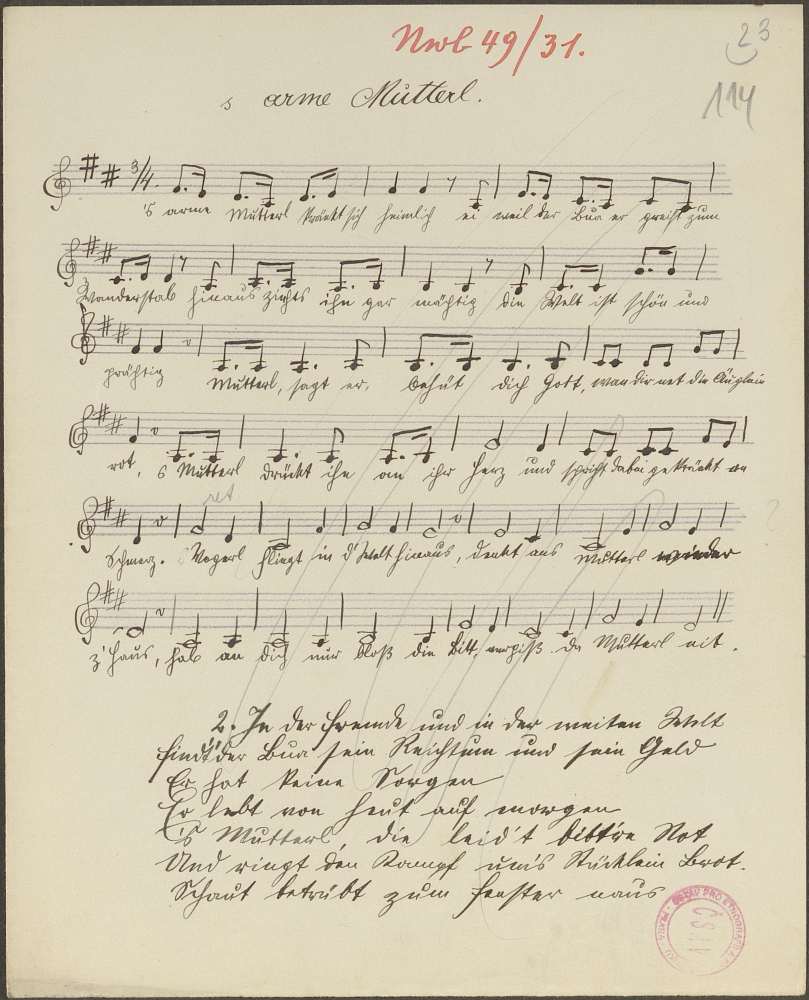 Nwb 49/31.
23
114
s arme Mutterl.
3/4.
's arme Mutterl kränkt sich heimlich ei weil der Bua er greift zum
Wanderstab hinaus ziehts ihn gar mächtig die Welt ist schön und
prächtig Mutterl, sagt er, behüt dich Gott, wan dir net die Äuglein
rot, s Mutterl drückt ihn an ihr Herz und spricht dabei gekränkt an
Schmerz. Vogerl fliegt in d' Welt hinaus, denkt ans Mutterl wieder
z' Haus, hab an dich nur bloß die Bitt, vergiß da Mutterl nit.
2. In der Fremde und in der weiten Welt
findt' der Bua sein Reichtum und sein Geld
Er hat keine Sorgen
Er lebt von heut auf morgen
's Mutterl, die leid't bitt're Not
Und ringt den Kampf um's Stücklein Brot.
Schaut betrübt zum Fenster naus